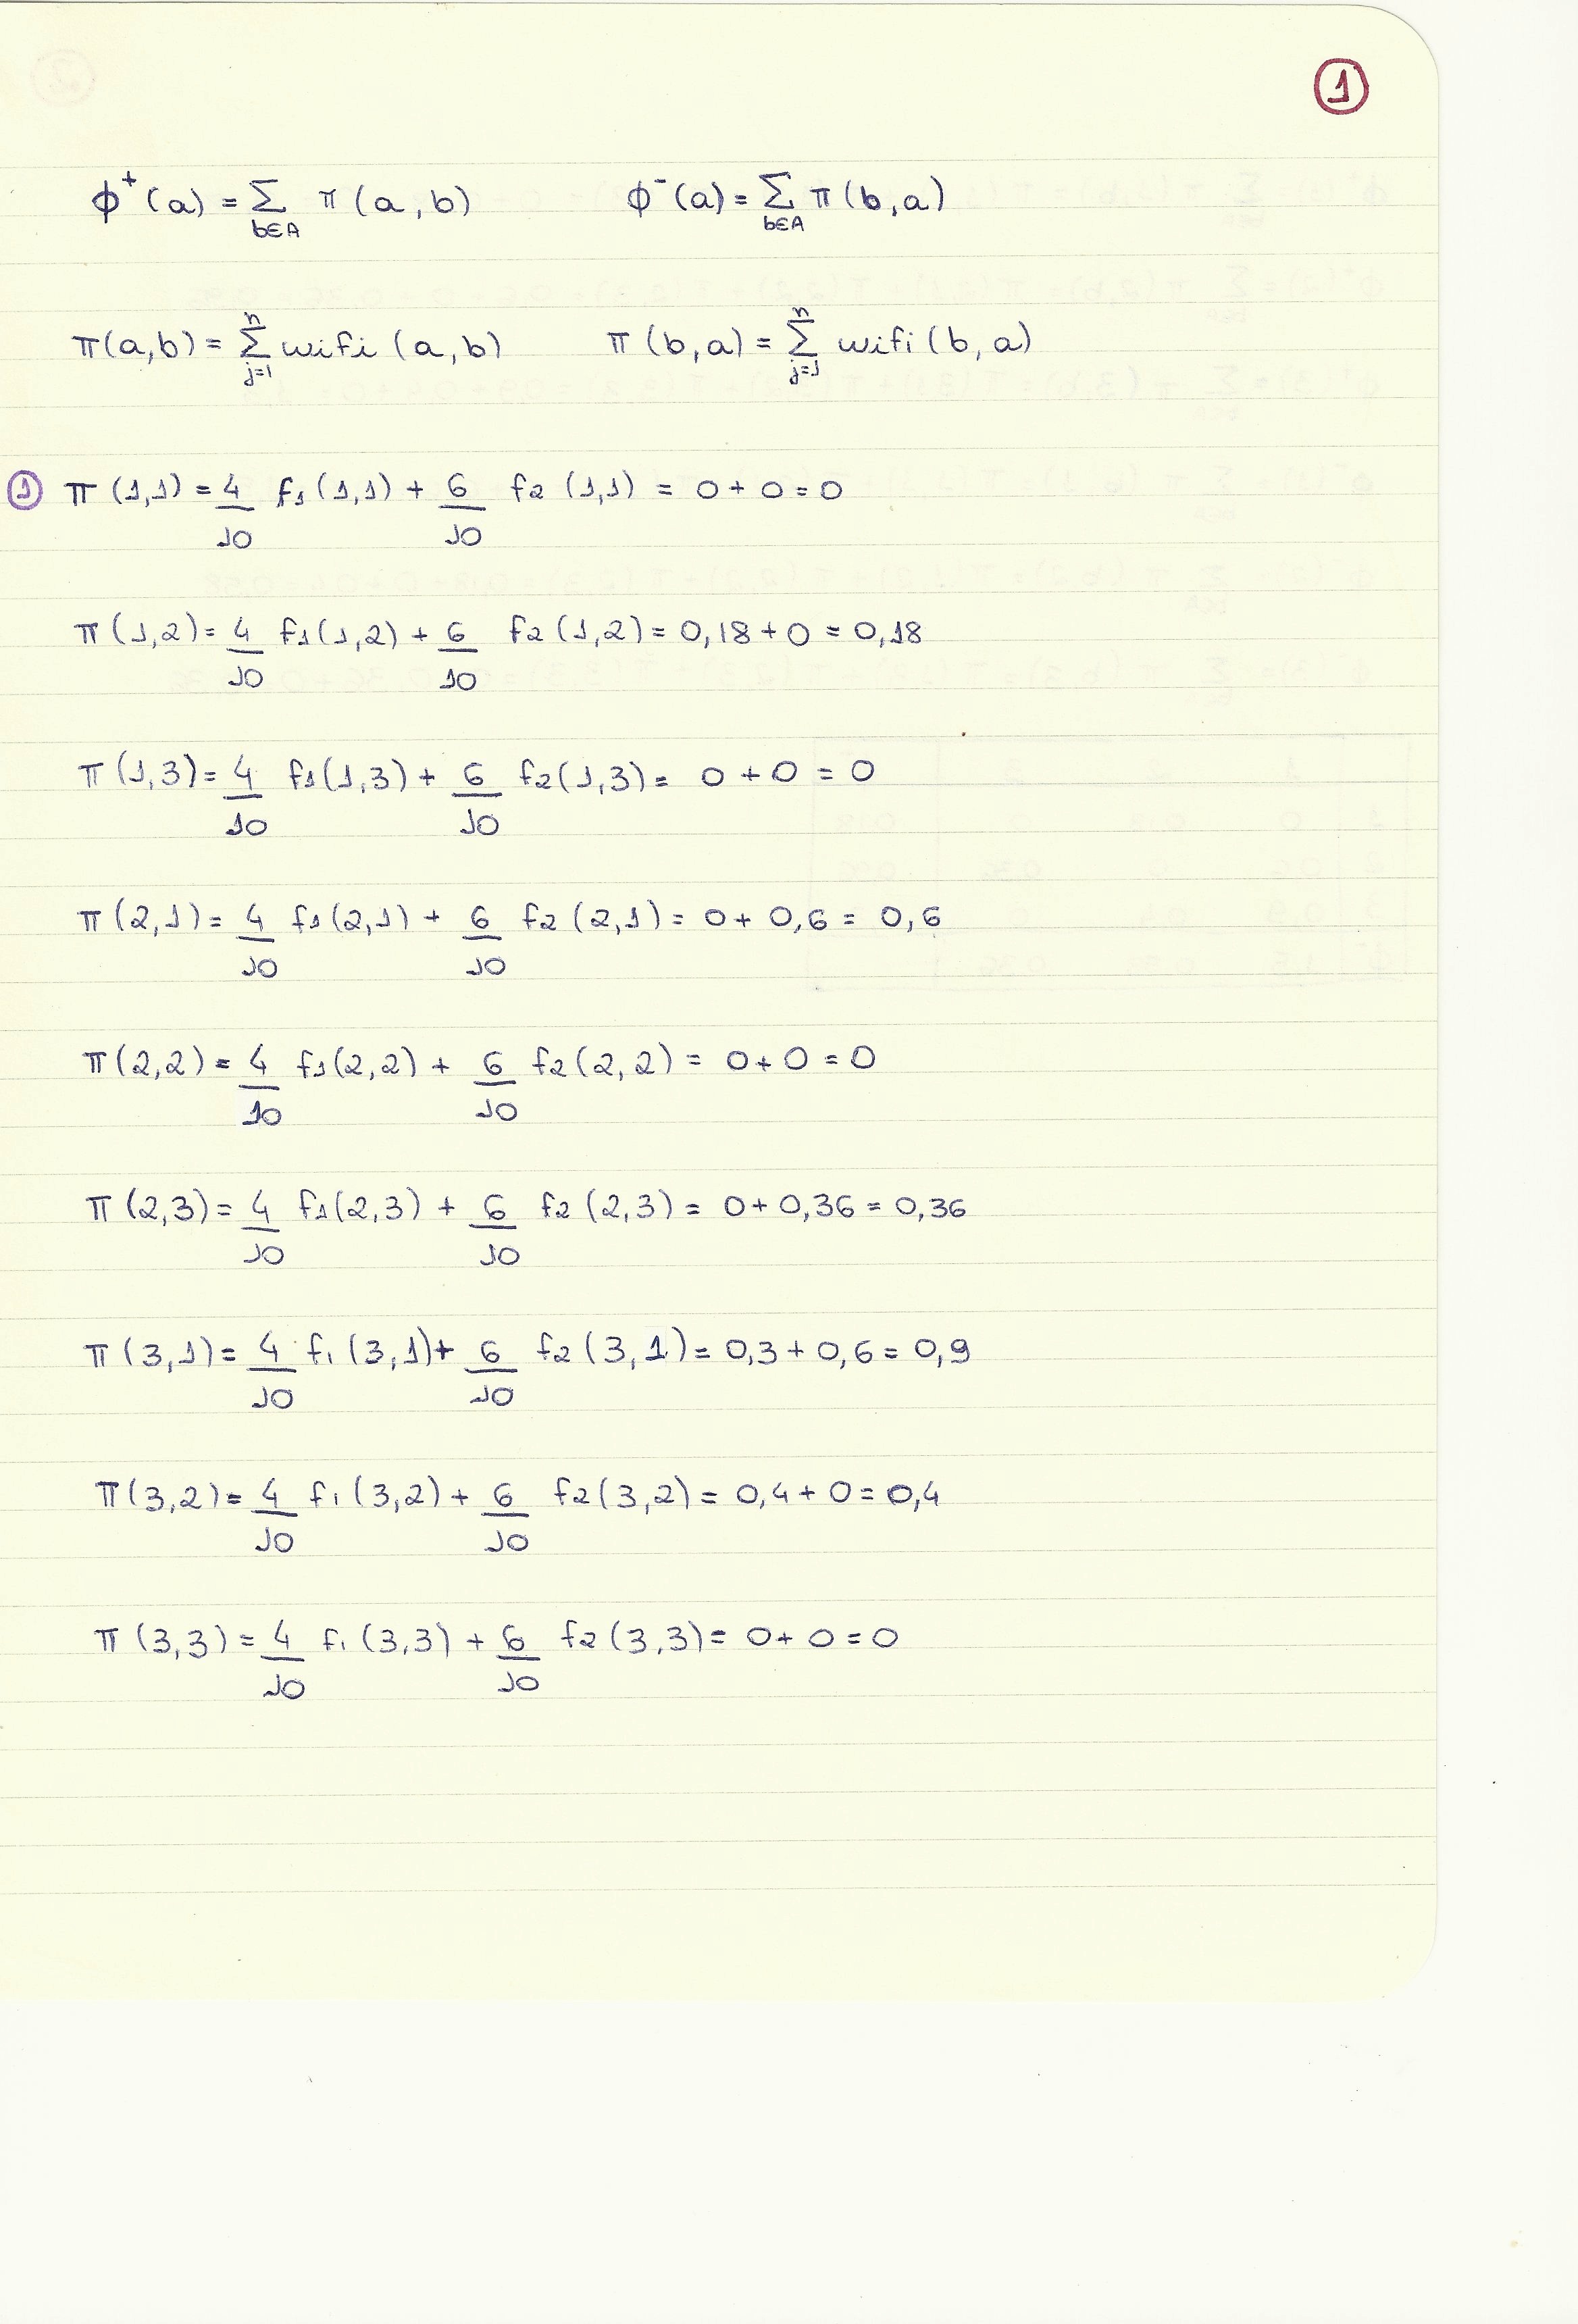 1
ϕ⁺(a) = Σ b∈A π(a,b)   ϕ⁻(a) = Σ b∈A π(b,a)
π(a,b) = Σ j=1 n wifi(a,b)   π(b,a) = Σ j=1 n wifi(b,a)
1 π(1,1) = 4/10 f1(1,1) + 6/10 f2(1,1) = 0+0=0
π(1,2) = 4/10 f1(1,2) + 6/10 f2(1,2) = 0,18+0 = 0,18
π(1,3) = 4/10 f1(1,3) + 6/10 f2(1,3) = 0+0 = 0
π(2,1) = 4/10 f1(2,1) + 6/10 f2(2,1) = 0+0,6 = 0,6
π(2,2) = 4/10 f1(2,2) + 6/10 f2(2,2) = 0+0=0
π(2,3) = 4/10 f1(2,3) + 6/10 f2(2,3) = 0+0,36 = 0,36
π(3,1) = 4/10 f1(3,1) + 6/10 f2(3,1) = 0,3+0,6 = 0,9
π(3,2) = 4/10 f1(3,2) + 6/10 f2(3,2) = 0,4+0=0,4
π(3,3) = 4/10 f1(3,3) + 6/10 f2(3,3) = 0+0=0